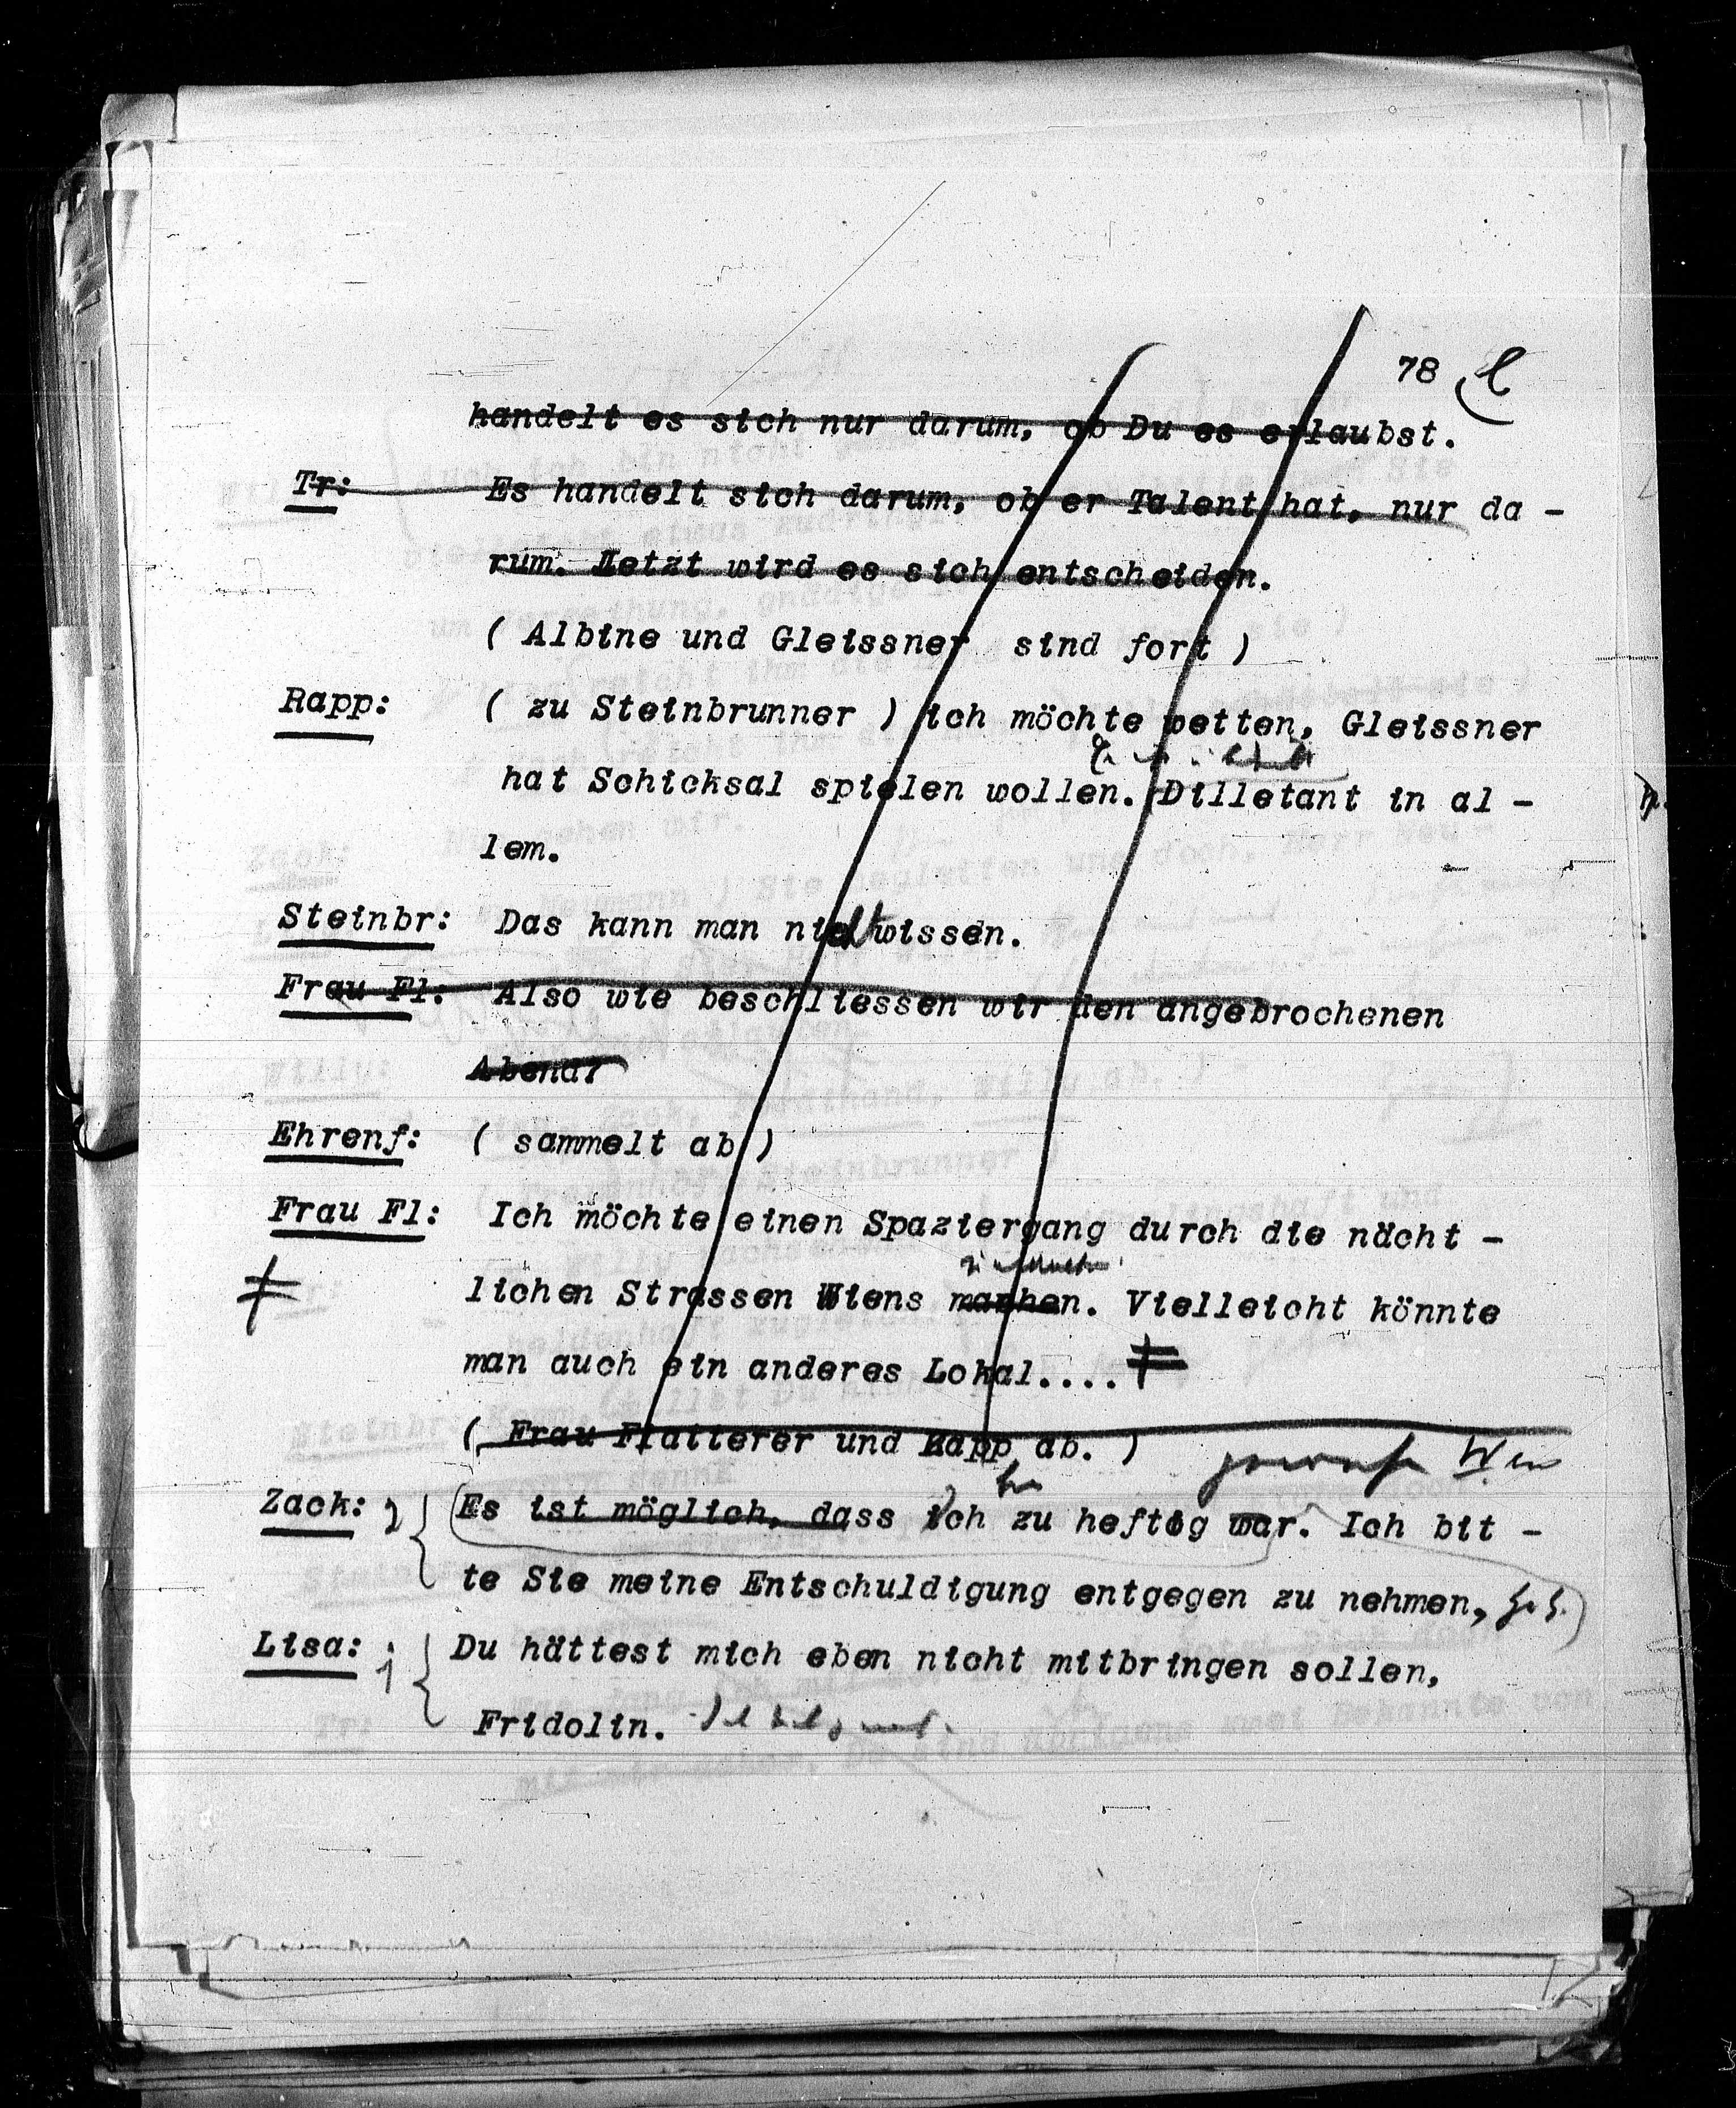 78
handelt es sich nur darum, ob Du es erlaubst.
Tr: Es handelt sich darum, ob er Talent hat, nur da -
rum. Jetzt wird es sich entscheiden.
( Albine und Gleissner sind fort )
Rapp: ( zu Steinbrunner ) ich möchte wetten, Gleissner
hat Schicksal spielen wollen. Dilletant in al -
lem.
Steinbr: Das kann man nicht wissen.
Frau Fl: Also wie beschliessen wir den angebrochenen
Abend?
Ehrenf: ( sammelt ab )
Frau Fl: Ich möchte einen Spaziergang durch die nächt -
lichen Strassen Wiens machen. Vielleicht könnte
man auch ein anderes Lokal....
( Frau Flatterer und Rapp ab. )
Zack: 2 Es ist möglich, dass ich zu heftig war. Ich bit -
te Sie meine Entschuldigung entgegen zu nehmen,
Lisa: 1 Du hättest mich eben nicht mitbringen sollen,
Fridolin.